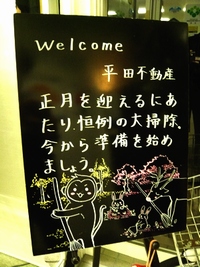 Welcome
平田不動産
正月を迎えるにあ
たり、恒例の大掃除、
今から準備を始め
ましょう。